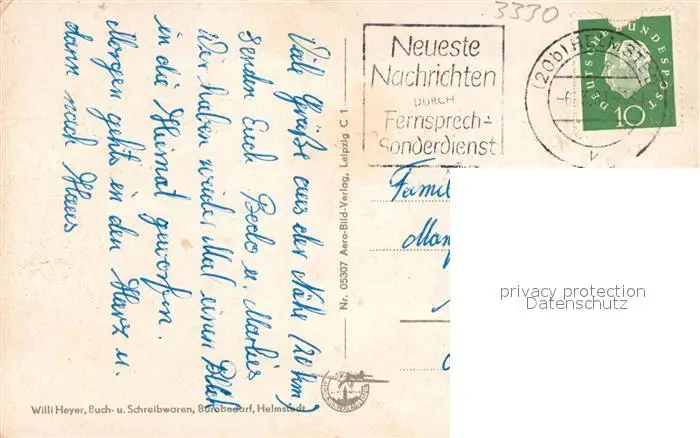 3330
Neueste
Nachrichten
DURCH
Fernsprech-
Sonderdienst
(20b) HELMSTE
DEUTSCHE BUNDESPOST
10
Viele Grüße aus der Nähe (20 km)
senden Euch Bodo u. Marlies
Wir haben wieder Mal einen Blick
in die Heimat geworfen.
Morgen gehts in den Harz u.
dann nach Haus
Nr. 05307 Aero-Bild-Verlag, Leipzig C 1
Famil
privacy protection
Datenschutz
Willi Heyer, Buch- u. Schreibwaren, Bürobedarf, Helmstedt